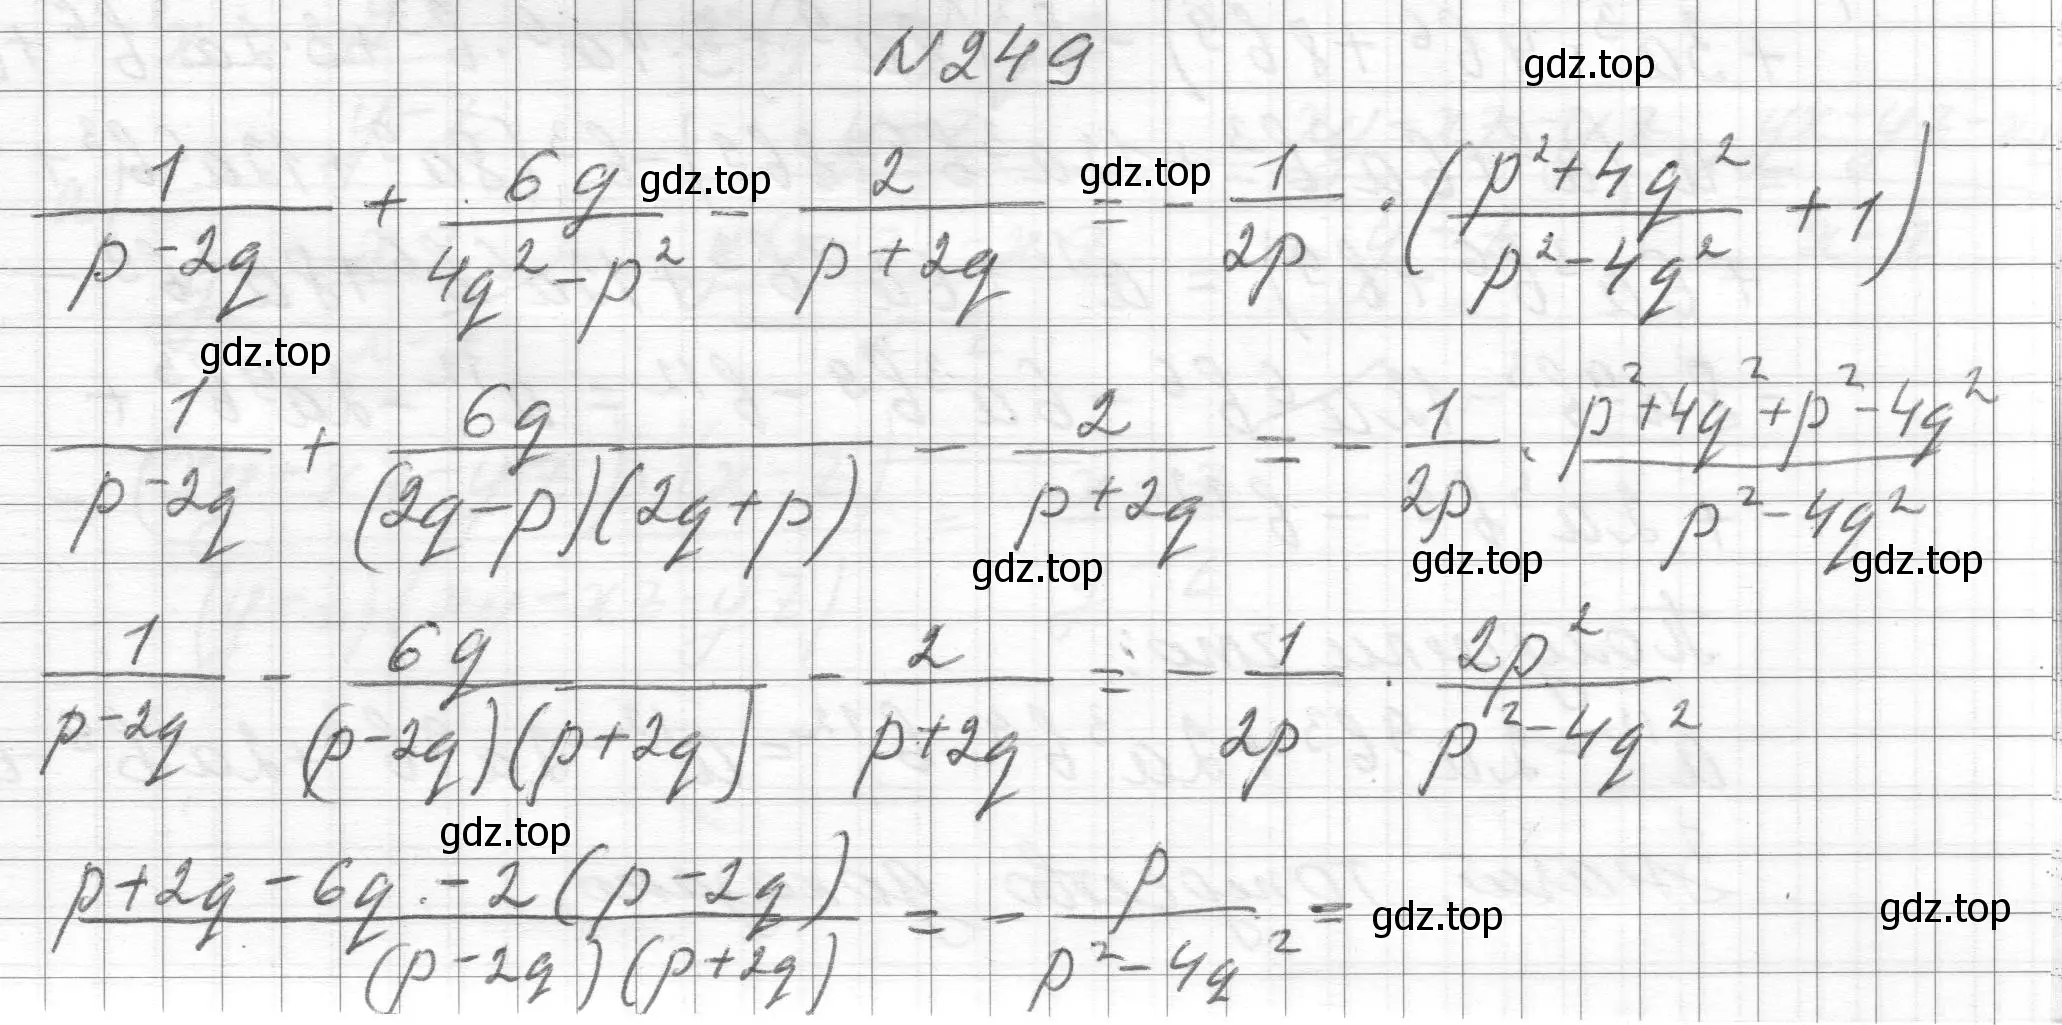 N 249
gdz.top
1/(p-2q) + 6q/(4q²-p²) - 2/(p+2q) = - 1/2p · ((p²+4q²)/(p²-4q²) + 1)
gdz.top gdz.top
gdz.top
1/(p-2q) + 6q/((2q-p)(2q+p)) - 2/(p+2q) = - 1/2p · (p²+4q²+p²-4q²)/(p²-4q²)
gdz.top gdz.top gdz.top
1/(p-2q) - 6q/((p-2q)(p+2q)) - 2/(p+2q) = - 1/2p · 2p²/(p²-4q²)
gdz.top
(p+2q-6q-2(p-2q))/((p-2q)(p+2q)) = - p/(p²-4q²) =
gdz.top gdz.top